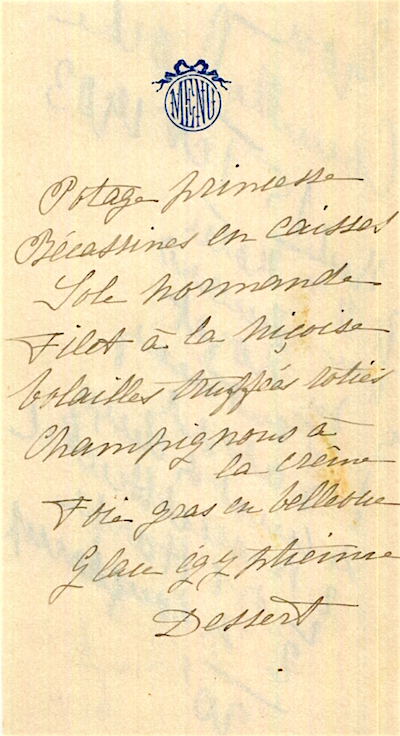 MENU
Potage princesse
Bécassines en caisses
Sole normande
Filet à la niçoise
Volailles truffées roties
Champignons à
la crême
Foie gras en bellevue
Glace égyptienne
Dessert